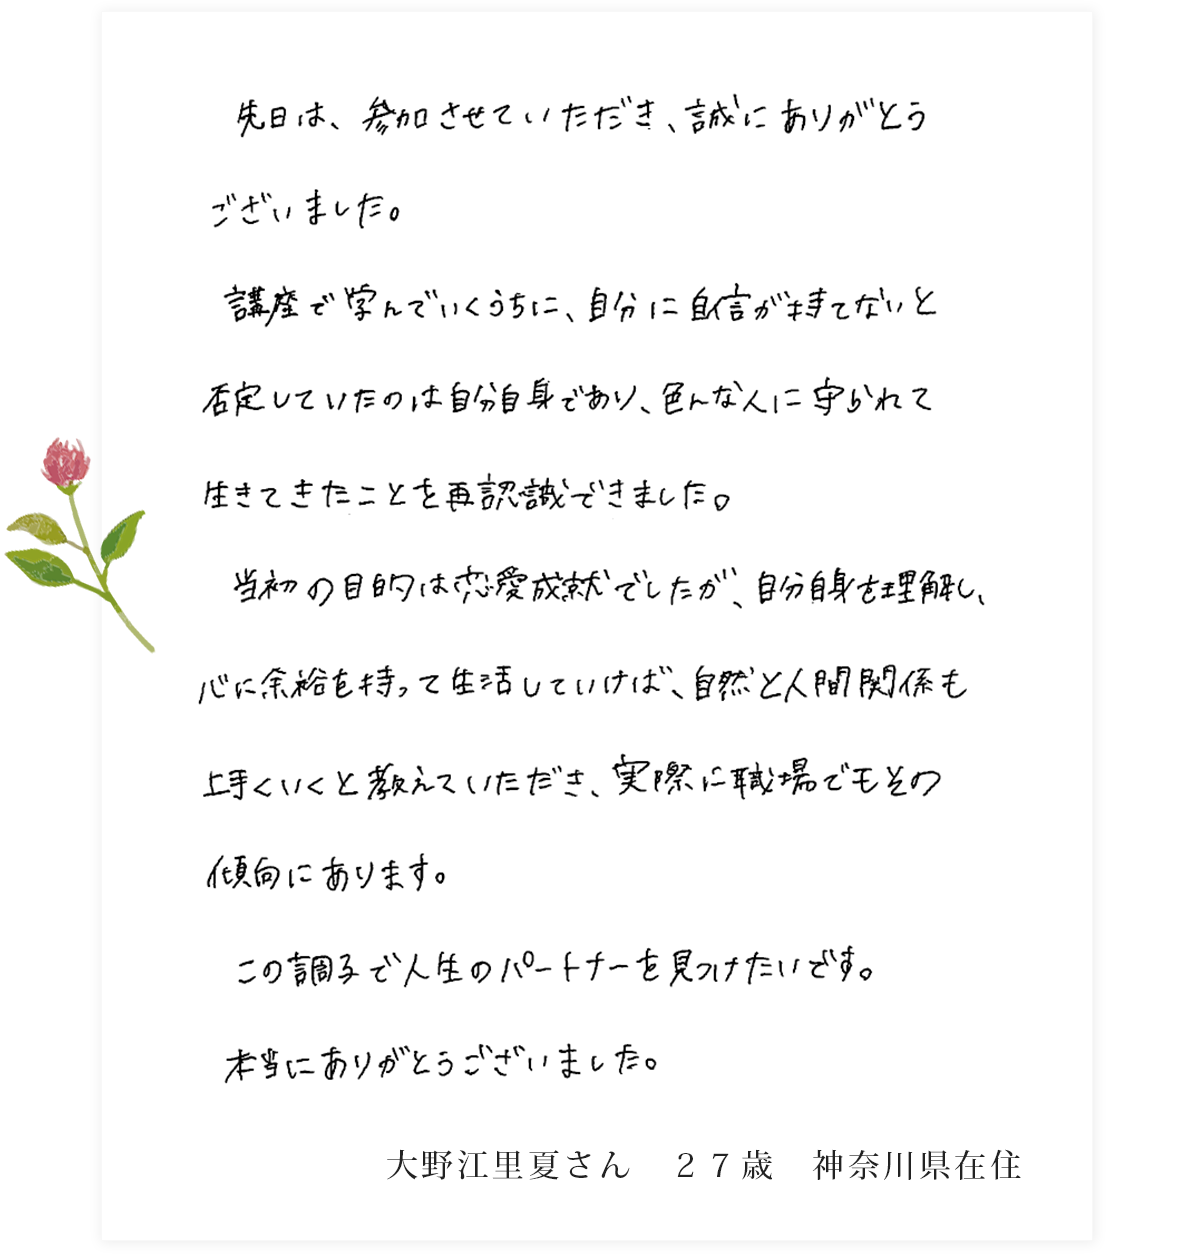 先日は、参加させていただき、誠にありがとう
ございました。
講座で学んでいくうちに、自分に自信が持てないと
否定していたのは自分自身であり、色んな人に守られて
生きてきたことを再認識できました。
当初の目的は恋愛成就でしたが、自分自身を理解し、
心に余裕を持って生活していけば、自然と人間関係も
上手くいくと教えていただき、実際に職場でもその
傾向にあります。
この調子で人生のパートナーを見つけたいです。
本当にありがとうございました。
大野江里夏さん　２７歳　神奈川県在住